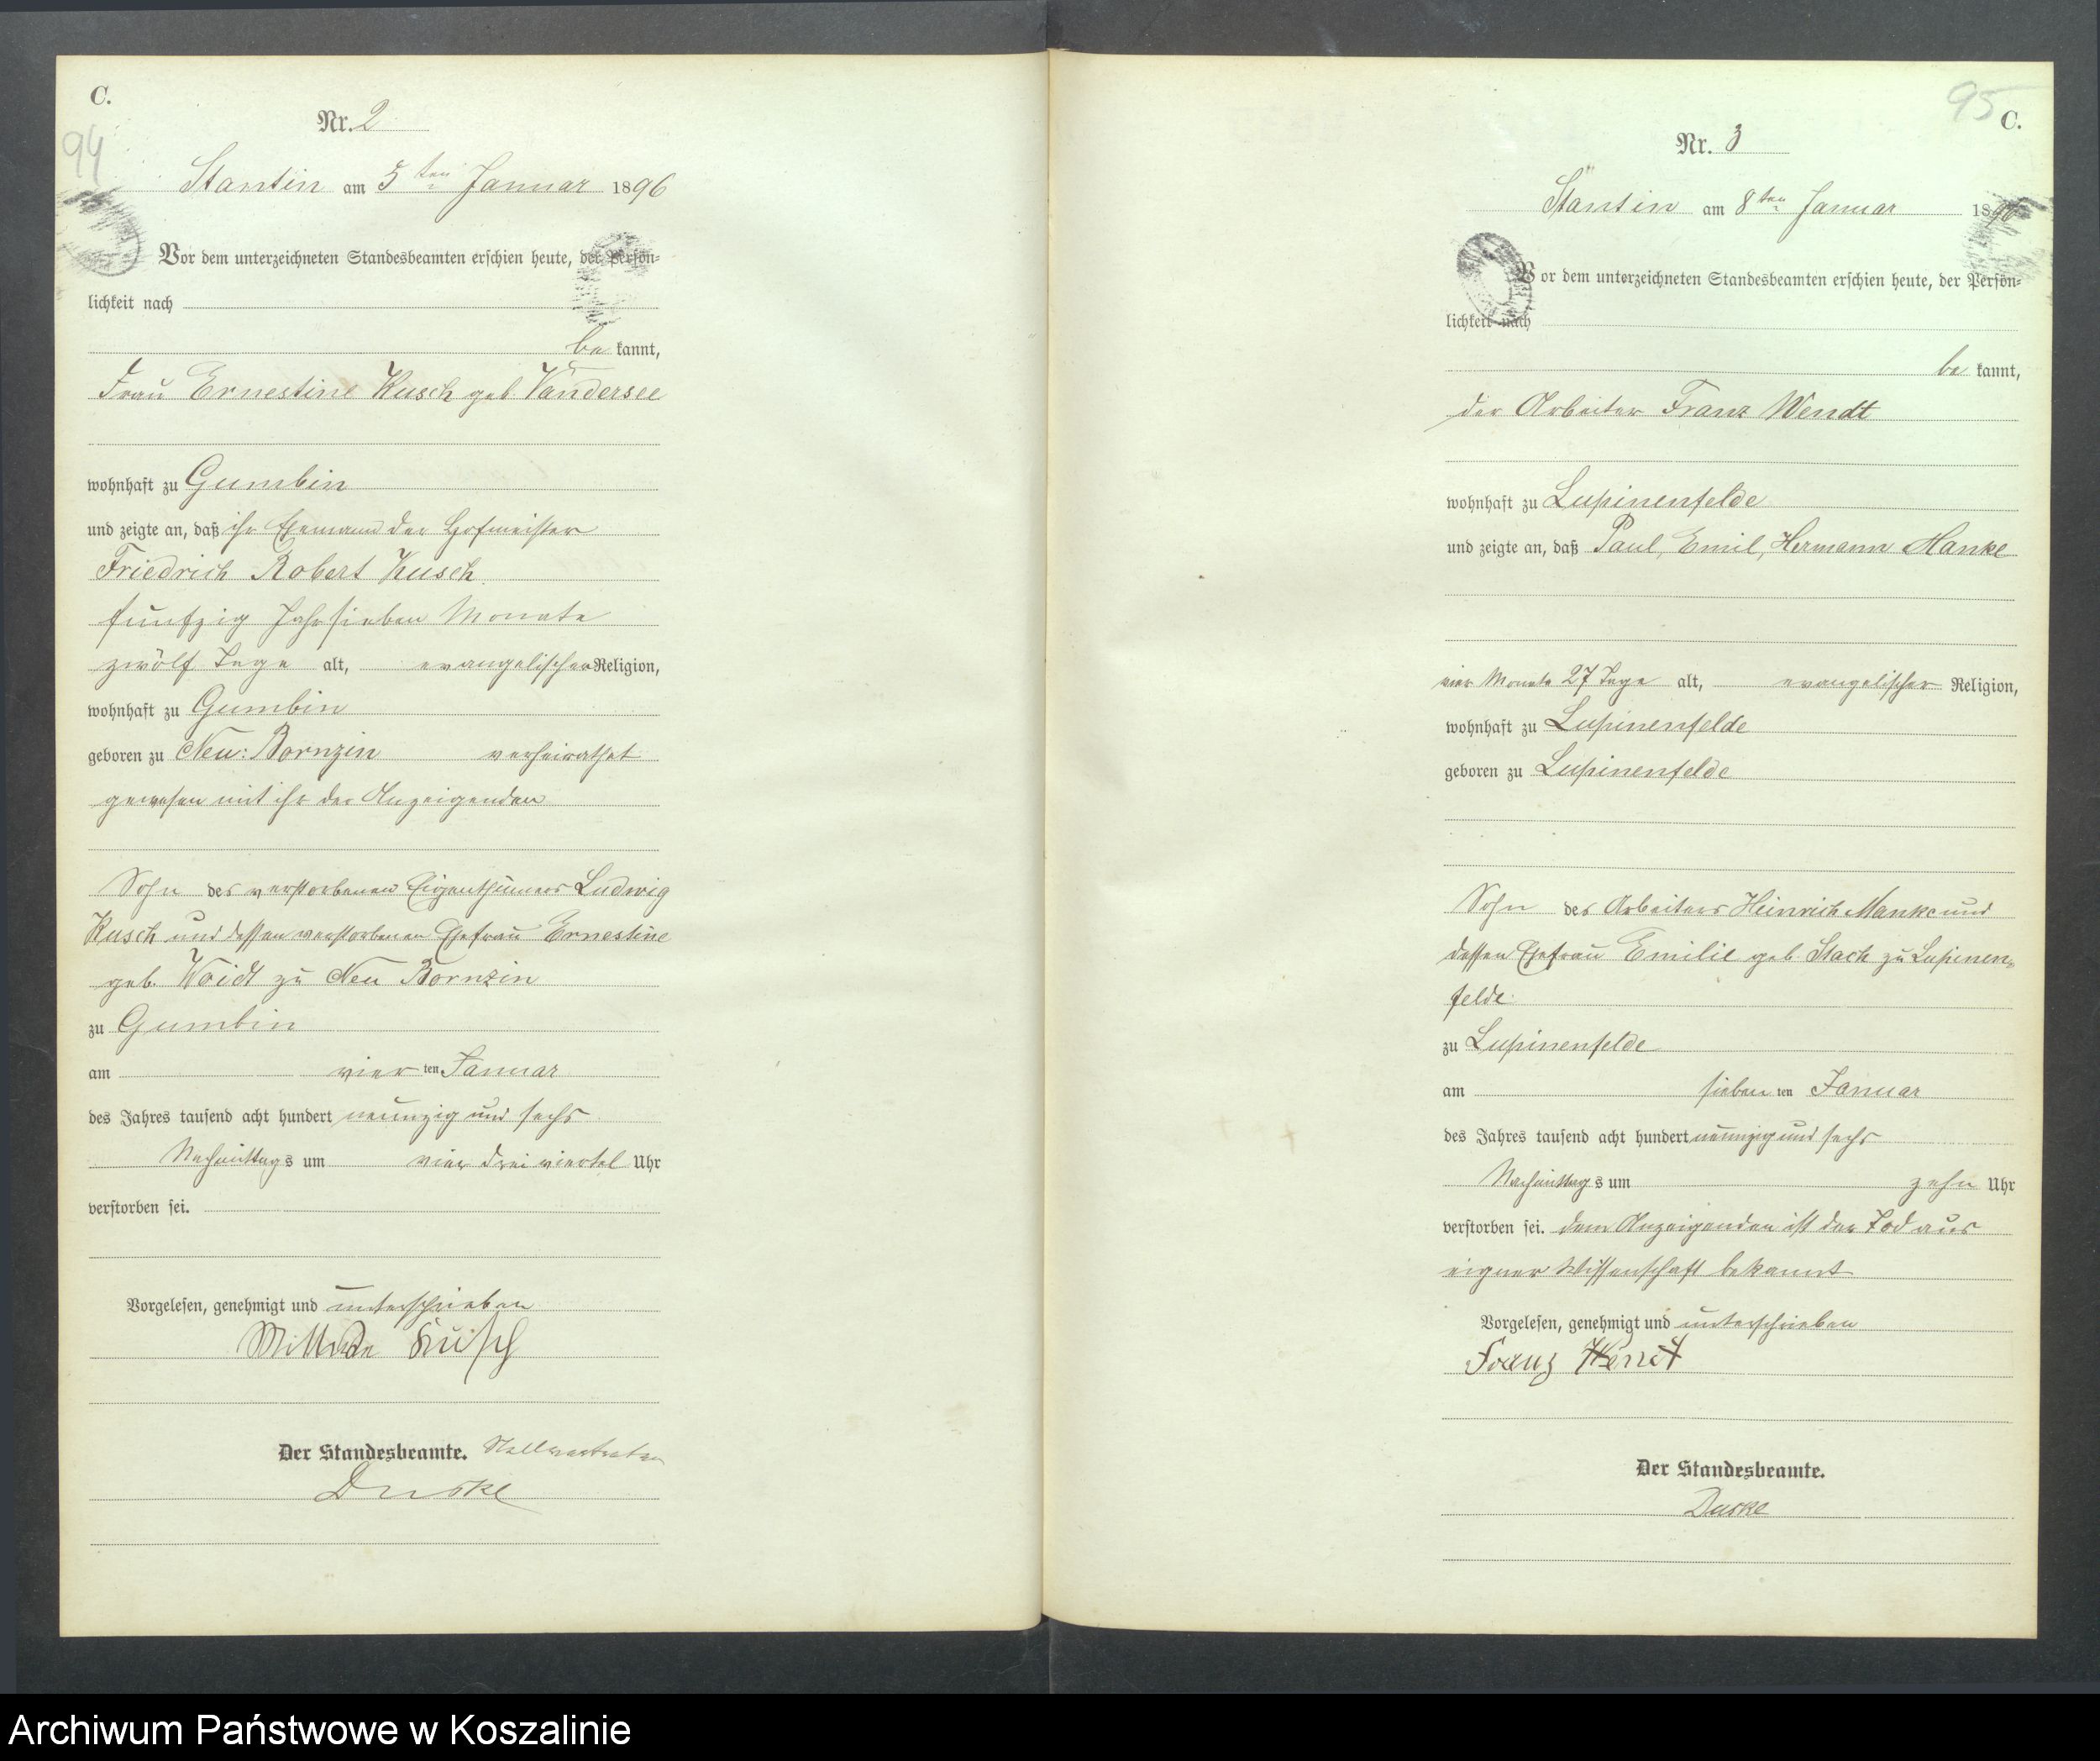 C.
94
Nr. 2
Stantin am 5ten Januar 1896
Vor dem unterzeichneten Standesbeamten erschien heute, der Persön-
lichkeit nach
be kannt,
Frau Ernestine Kusch geb. Vandersee
wohnhaft zu Gumbin
und zeigte an, daß ihr Ehemann der Hofmeister
Friedrich Robert Kusch
fünfzig Jahr sieben Monate
zwölf Tage alt, evangelischer Religion,
wohnhaft zu Gumbin
geboren zu Neu: Bornzin verheirathet
gewesen mit ihr der Anzeigenden
Sohn des verstorbenen Eigenthümers Ludwig
Kusch und dessen verstorbenen Ehefrau Ernestine
geb. Woidt zu Neu Bornzin
zu Gumbin
am vier ten Januar
des Jahres tausend acht hundert neunzig und sechs
Nachmittags um vier drei viertel Uhr
verstorben sei.
Vorgelesen, genehmigt und unterschrieben
Kusch
Der Standesbeamte. Stellvertreter
Duske
95
C.
Nr. 3
Stantin am 8ten Januar 1896
Vor dem unterzeichneten Standesbeamten erschien heute, der Persön-
lichkeit nach
be kannt,
der Arbeiter Franz Wendt
wohnhaft zu Lupinenfelde
und zeigte an, daß Paul, Emil, Hermann Manke
vier Monate 27 Tage alt, evangelischer Religion,
wohnhaft zu Lupinenfelde
geboren zu Lupinenfelde
Sohn des Arbeiters Heinrich Manke und
dessen Ehefrau Emilie geb. Stach zu Lupinen-
felde
zu Lupinenfelde
am sieben ten Januar
des Jahres tausend acht hundert neunzig und sechs
Nachmittags um zehn Uhr
verstorben sei. dem Anzeigenden ist der Tod aus
eigner Wissenschaft bekannt
Vorgelesen, genehmigt und unterschrieben
Franz Wendt
Der Standesbeamte.
Duske
Archiwum Państwowe w Koszalinie